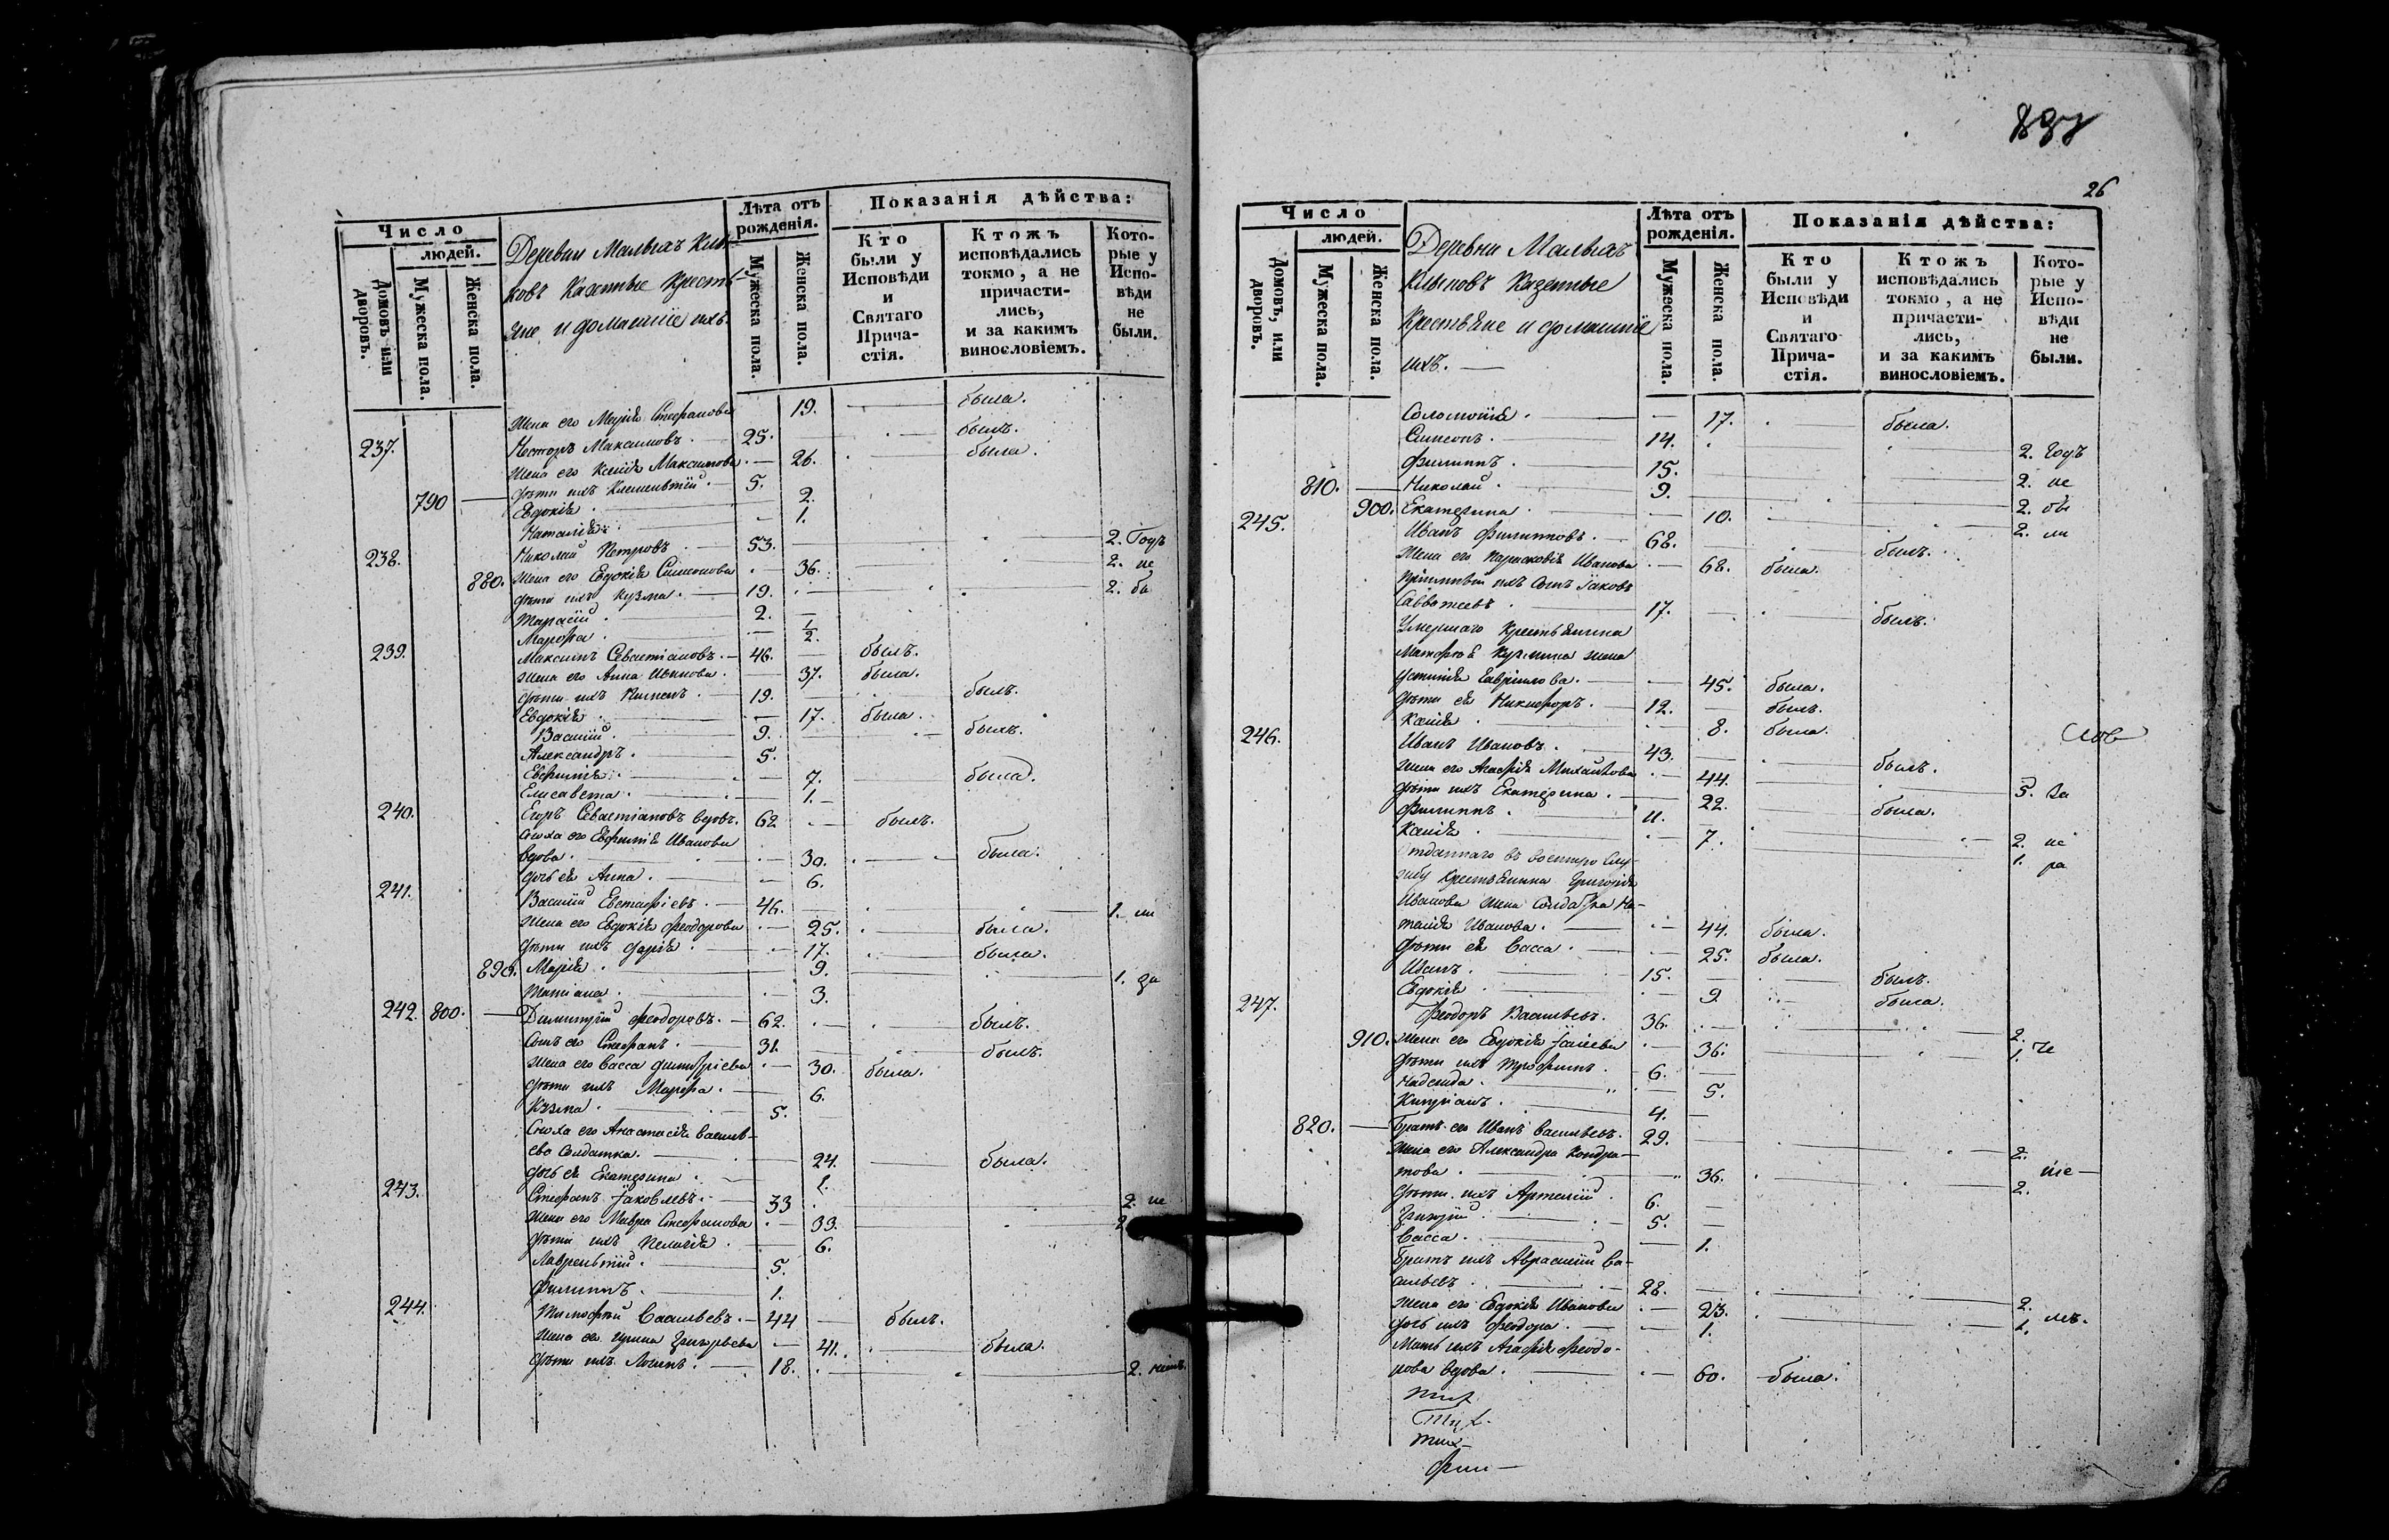 Число
людей.
Домовъ или дворовъ.
Мужеска пола.
Женска пола.
Деревни Малыхъ Клы-
ковъ Казенные Кресть-
яне и домашніе ихъ.
Лѣта отъ рожденія.
Мужеска пола.
Женска пола.
Показанія дѣйства:
Кто были у Исповѣди и Святаго Прича-стія.
Ктожъ исповѣдались токмо, а не причасти-лись, и за какимъ винословіемъ.
Кото-рые у Испо-вѣди не были.
Жена его Марія Стефанова 19. была.
237. Несторъ Максимовъ. 25. былъ.
Жена его Ксенія Максимова. 26. была.
790 дѣти ихъ Клементій. 5.
Евдокія. 2.
Наталія. 1.
238. Николай Петровъ. 53. 2. Годъ
880. Жена его Евдокія Симеонова 36. 2. не
дѣти ихъ Кузма. 19. 2. бы
Тарасій. 2.
Марфа. 1/2.
239. Максимъ Севастіановъ. 46. былъ.
Жена его Анна Иванова. 37. была.
дѣти ихъ Пименъ. 19. былъ.
Евдокія. 17. была.
Василій. 9. былъ.
Александръ. 5.
Евфимія. 7. была.
Елисавета. 1.
240. Егоръ Севастіановъ вдовъ. 62 былъ.
Сноха его Евфимія Иванова
вдова. 30. была.
дочь ея Анна. 6.
241. Василій Евстафіевъ. 46. 1. ли
Жена его Евдокія Феодорова 25. была.
дѣти ихъ Дарія. 17. была.
890. Марія. 9. 1. за
Татіана. 3.
242. 800. Димитрій Феодоровъ. 62. былъ.
Сынъ его Стефанъ. 31. былъ.
Жена его Васса Димитріева 30. была.
дѣти ихъ Марфа. 6.
Кузма. 5.
Сноха его Анастасія Василь-
ева Солдатка. 24. была.
дочь ея Екатерина. 1.
243. Стефанъ Іаковлевъ. 33 2. не
Жена его Мавра Стефанова 33. 2
дѣти ихъ Пелагія. 6.
Лаврентій. 5.
Филиппъ. 1.
244. Тимофей Васильевъ. 44 былъ.
Жена его Ирина Григорьева 41. была.
дѣти ихъ Логинъ. 18. 2.
26
Число
людей.
Домовъ, или дворовъ.
Мужеска пола.
Женска пола.
Деревни Малыхъ
Клыковъ Казенные
Крестьяне и домашніе
ихъ.
Лѣта отъ рожденія.
Мужеска пола.
Женска пола.
Показанія дѣйства:
Кто были у Исповѣди и Святаго Прича-стія.
Ктожъ исповѣдались токмо, а не причасти-лись, и за какимъ винословіемъ.
Кото-рые у Испо-вѣди не были.
Соломонія. 17. была.
Симеонъ. 14. 2. Годъ
Филиппъ. 15. 2. не
810. Николай. 9. 2. бы
900. Екатерина. 10. 2. ли
245. Иванъ Филипповъ. 68. былъ.
Жена его Парасковія Иванова 68. была.
Пріимный ихъ Сынъ Іаковъ
Савватеевъ. 17. былъ.
Умершаго Крестьянина
Матфея Кузмина жена
Устинія Гаврилова. 45. была.
дѣти ея Никифоръ. 12. былъ.
Ксенія. 8. была.
246. Иванъ Ивановъ. 43. былъ.
Жена его Агафія Михайлова 44. 3. За
дѣти ихъ Екатерина. 22. была.
Филиппъ. 11. 2. не
Ксенія. 7. 1. ра
Отданнаго въ военную Слу-
жбу Крестьянина Григорія
Иванова жена Солдатка На-
талія Иванова. 44. была.
дѣти ея Васса. 25. была.
Иванъ. 15. былъ.
Евдокія. 9 была.
247. Феодоръ Васильевъ. 36. 2.
910. Жена его Евдокія Іаковлева 36. 1. че
дѣти ихъ Трофимъ. 6.
Надежда. 5.
Кипріанъ. 4.
820. Братъ его Иванъ Васильевъ. 29. 2.
Жена его Александра Кондра-
това. 36. 2.
дѣти ихъ Артемій. 6.
Григорій. 5.
Васса. 1.
Братъ ихъ Аврамій Ва-
сильевъ. 28. 2.
Жена его Евдокія Иванова 23. 1.
дочь ихъ Феодора. 1.
Мать ихъ Агафія Феодо-
рова вдова. 60. была.